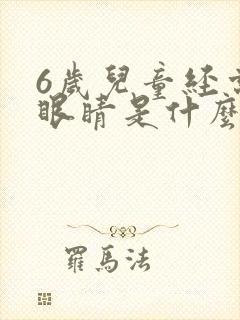 6歲兒童經
眼睛是什麼
羅馬法